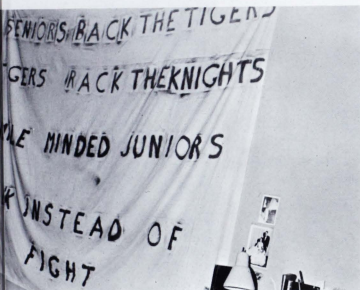 SENIORS BACK THE TIGERS
GERS RACK THE KNIGHTS
LE MINDED JUNIORS
K INSTEAD OF
FIGHT